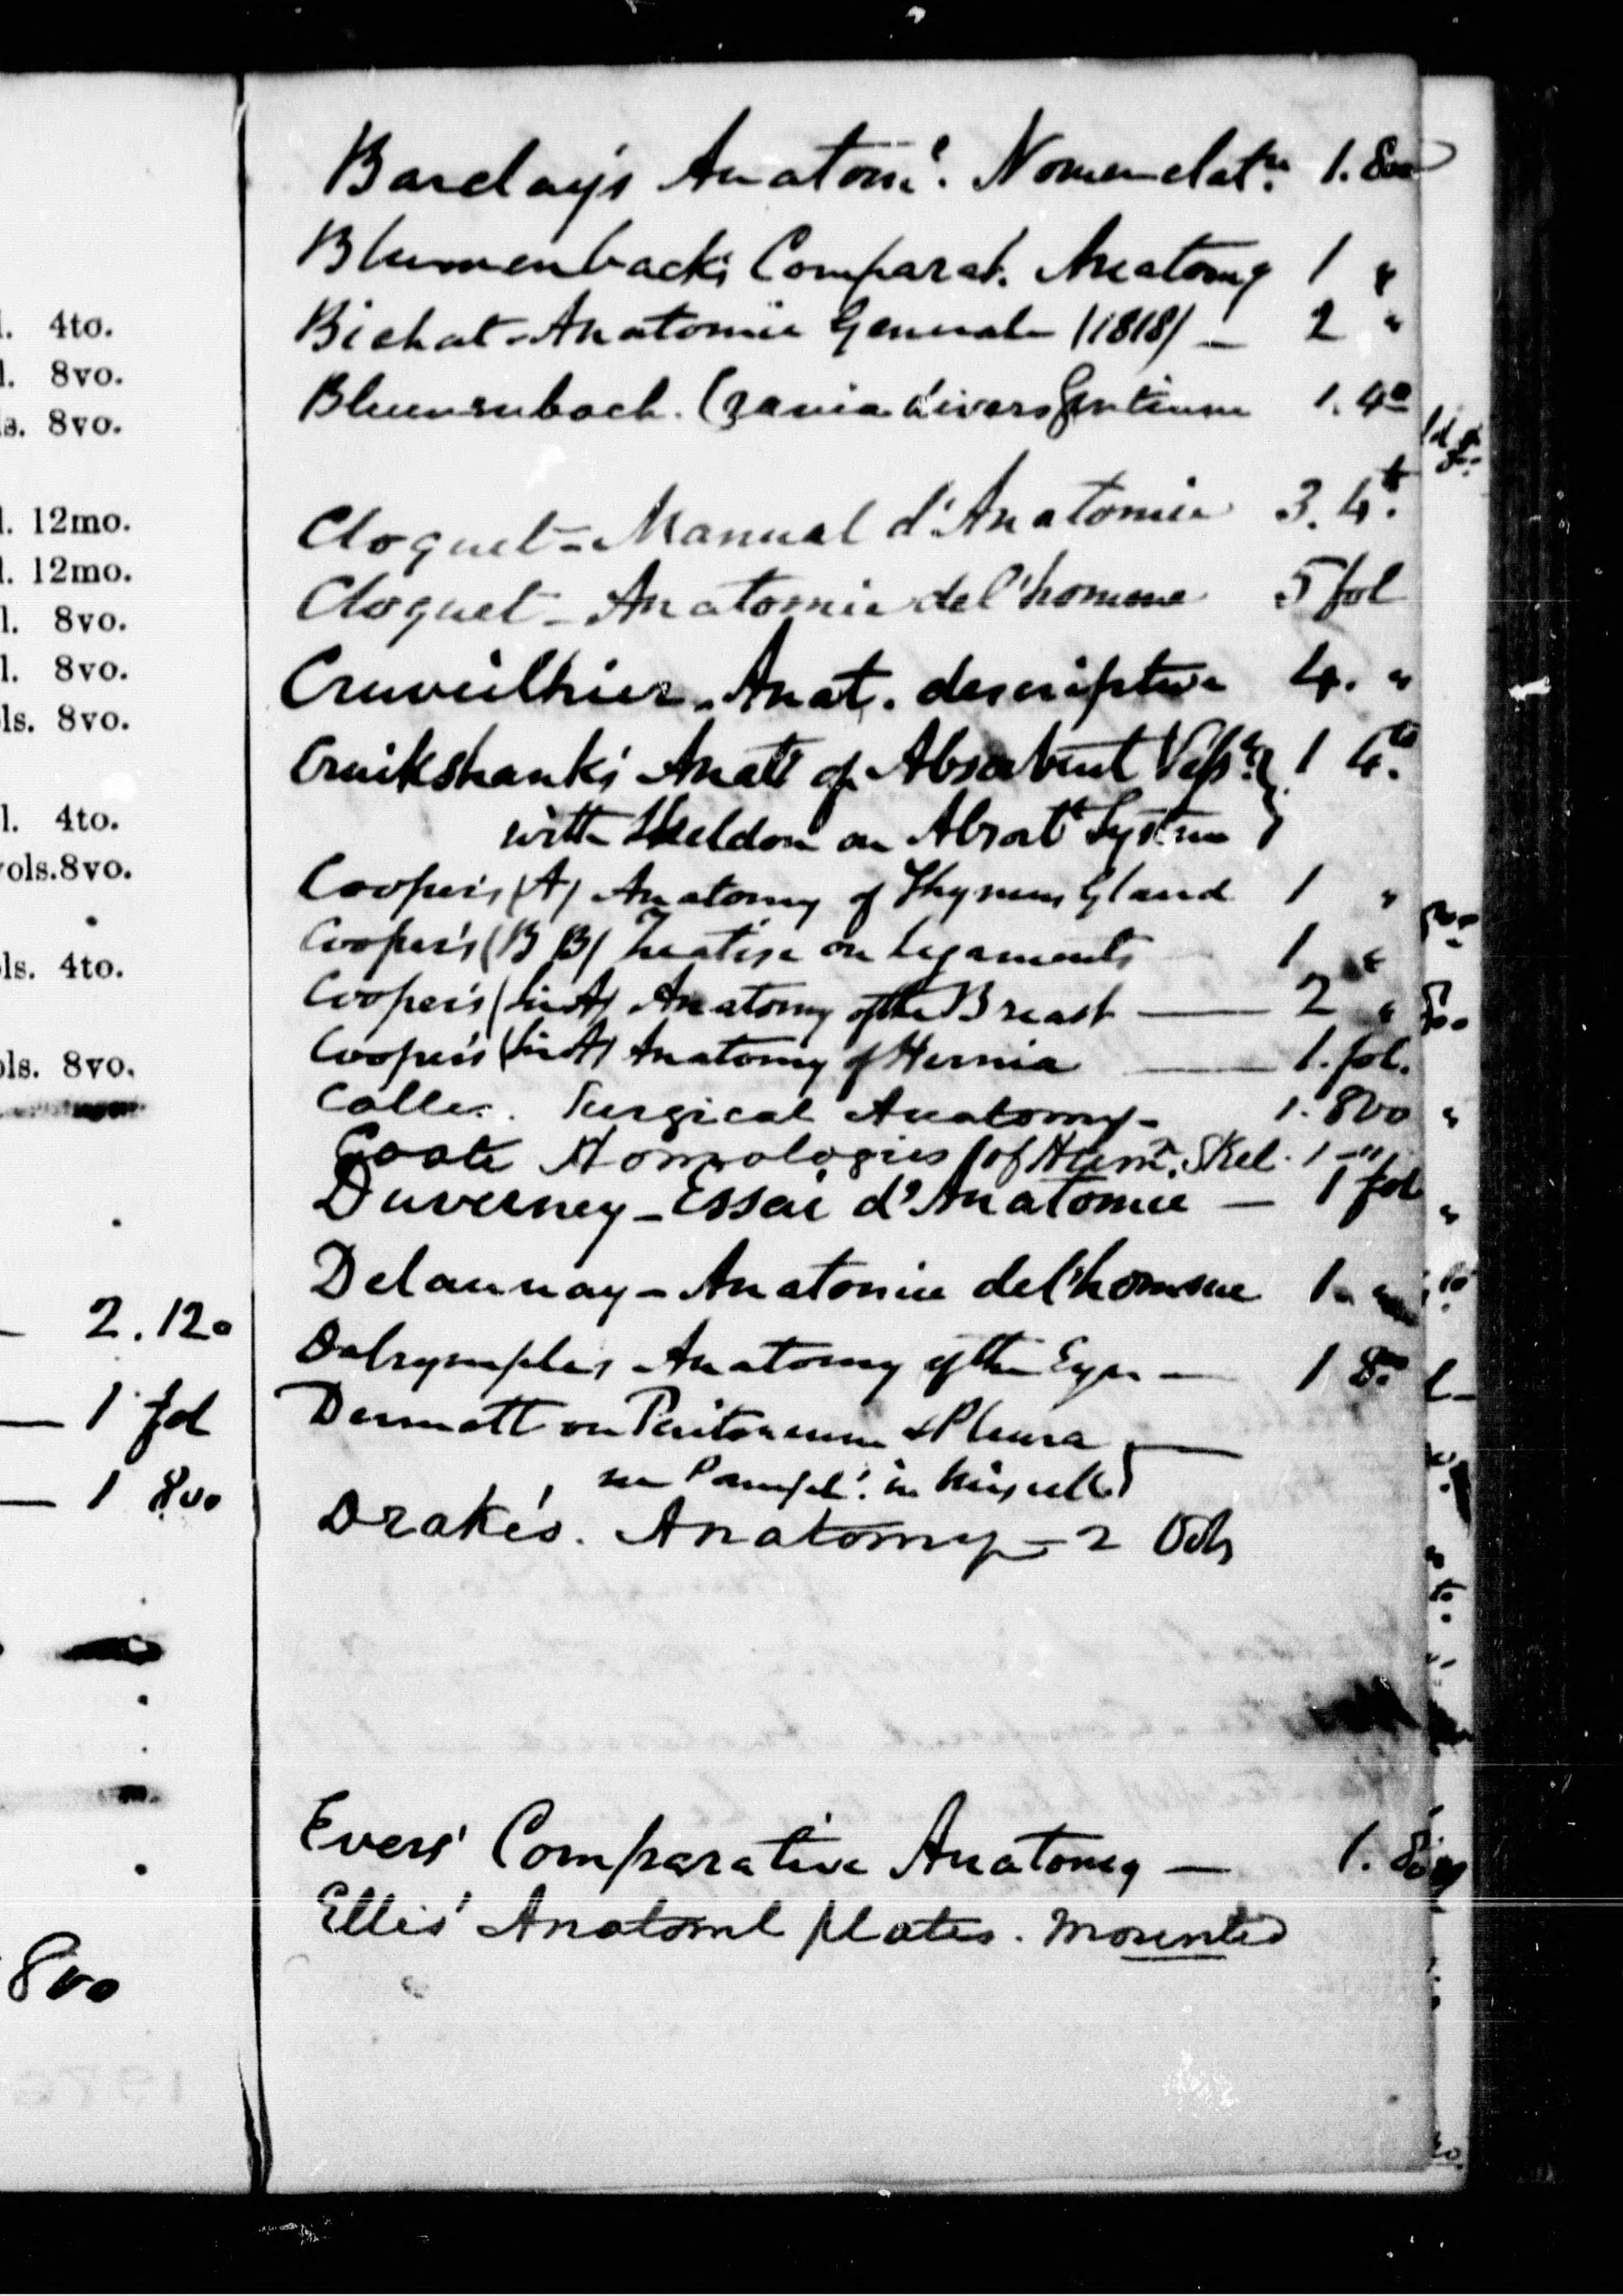 l. 4to.
l. 8vo.
s. 8vo.
l. 12mo.
l. 12mo.
l. 8vo.
l. 8vo.
ls. 8vo.
l. 4to.
vols.8vo.
ls. 4to.
ols. 8vo.
2. 12o
1 fol
1 8vo
8vo
Barclay's Anatomˡ. Nomenclatʳᵉ 1. 8vo
Blumenbach's Comparat. Anatomy 1 "
Bichat - Anatomie Generale (1818) — 2 "
Blumenbach. Crania divers Gentium 1. 4o
Cloquet - Manual d'Anatomie 3. 4t.
Cloquet - Anatomie de l'homme 5 fol
Cruveilhier - Anat. descriptive 4. "
Cruikshank's Anat of Absorbent Vessˡˢ } 1 4to
with Sheldon on Absorbt System }
Cooper's (A) Anatomy of Thymus Gland 1 "
Cooper's (B B) Treatise on Ligaments 1 "
Cooper's (Sir A) Anatomy of the Breast — 2 "
Cooper's (Sir A) Anatomy of Hernia — 1. fol.
Colles. Surgical Anatomy - 1. 8vo
Coote Homologies (of Humn. Skel. 1 - "
Duverney - Essai d'Anatomie — 1 fol
Delaunay - Anatomie de l'homme 1 -
Dalrymple's Anatomy of the Eye — 1 8vo
Dermott on Peritoneum & Pleura } —
see Pamphl. in Miscell. }
Drake's. Anatomy - 2 Vols
Evers' Comparative Anatomy — 1. 8vo
Ellis' Anatoml plates. Mounted